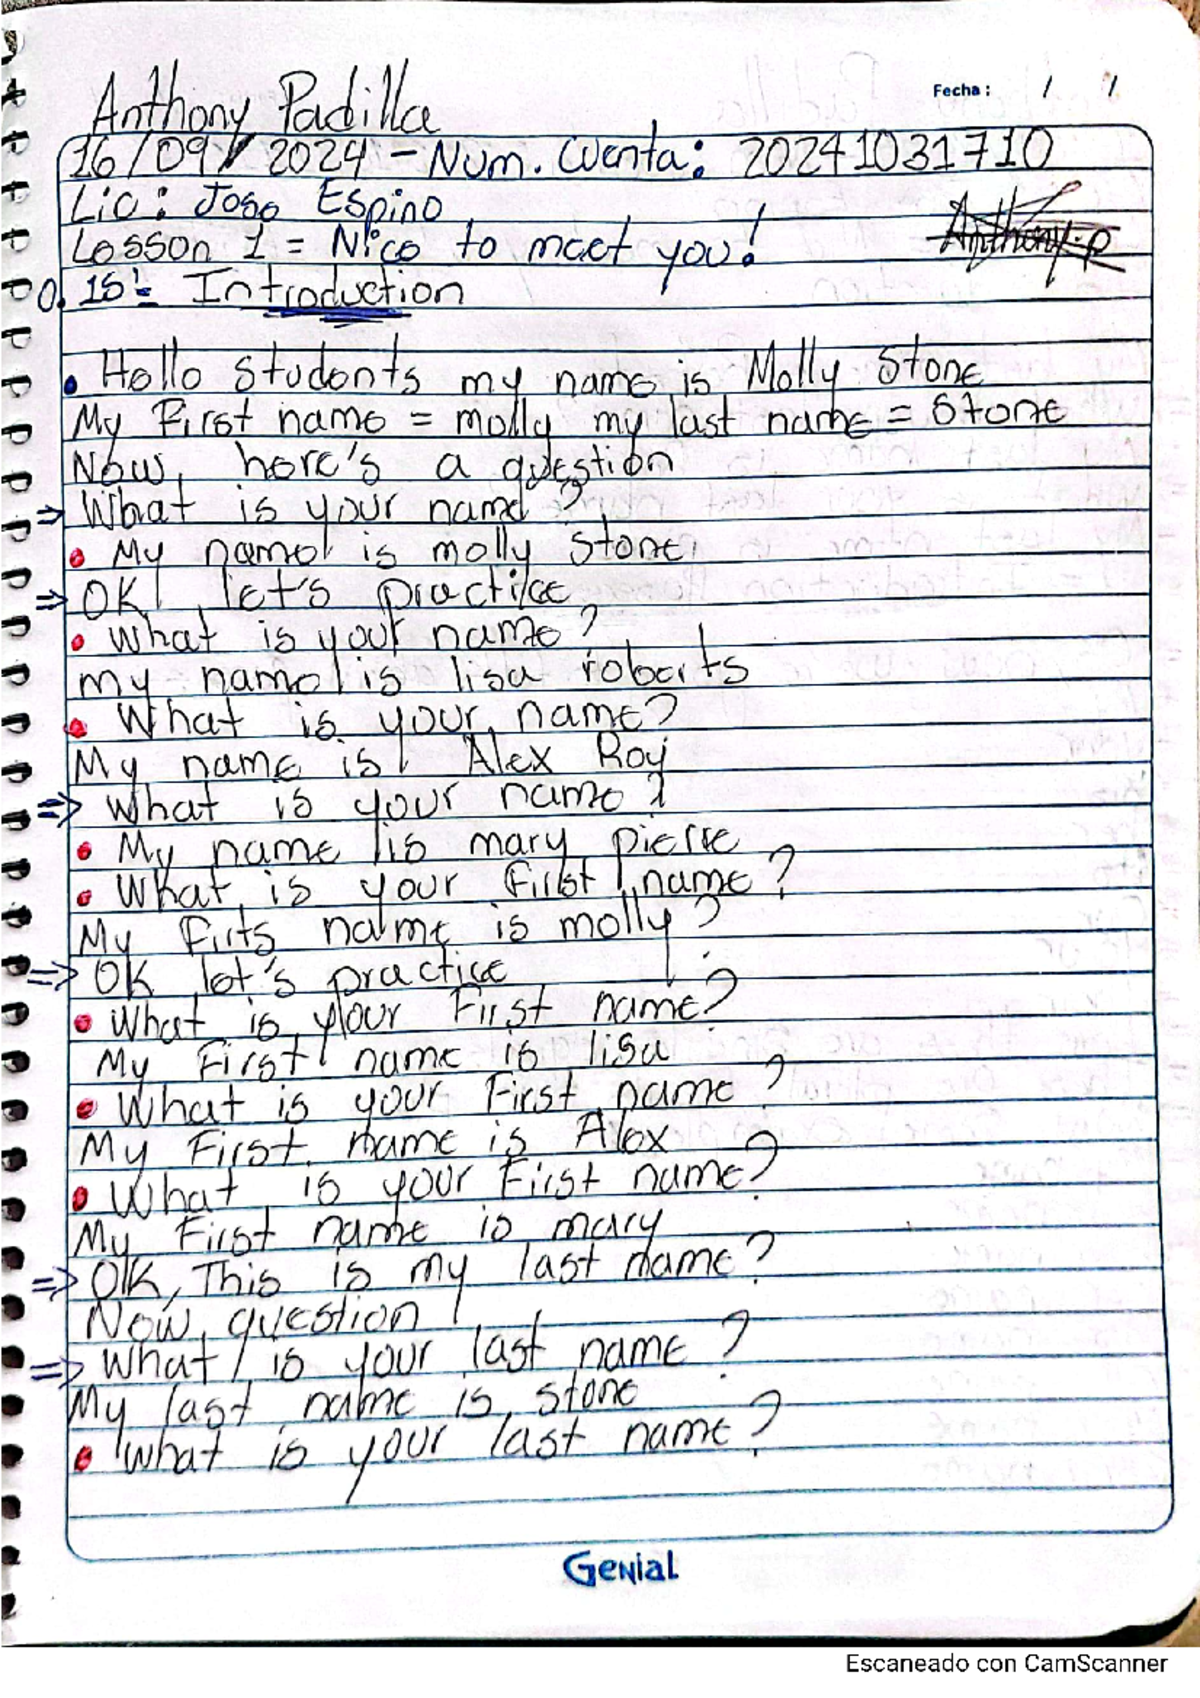 Anthony Padilla
Fecha: / /
16/09/2024 - Num. Cuenta: 20241031710
Lic: Jose Espino
Lesson 1 = Nice to meet you!
Anthony.p
0.15:- Introduction
• Hello students my name is Molly Stone
My First name = molly my last name = Stone
Now, here's a question
⇒ What is your name?
• My name is molly Stone.
⇒ OK, let's practice
• What is your name?
my name is lisa roberts
• What is your name?
My name is Alex Roy
⇒ What is your name?
• My name is mary pierre
• What is your first name?
My Firts name is molly?
⇒ OK let's practice
• What is your First name?
My First name is lisa
• What is your First name?
My First name is Alex
• What is your First name?
My First name is mary
⇒ OK, This is my last name?
Now, question
⇒ What is your last name?
My last name is stone
• What is your last name?
Genial
Escaneado con CamScanner